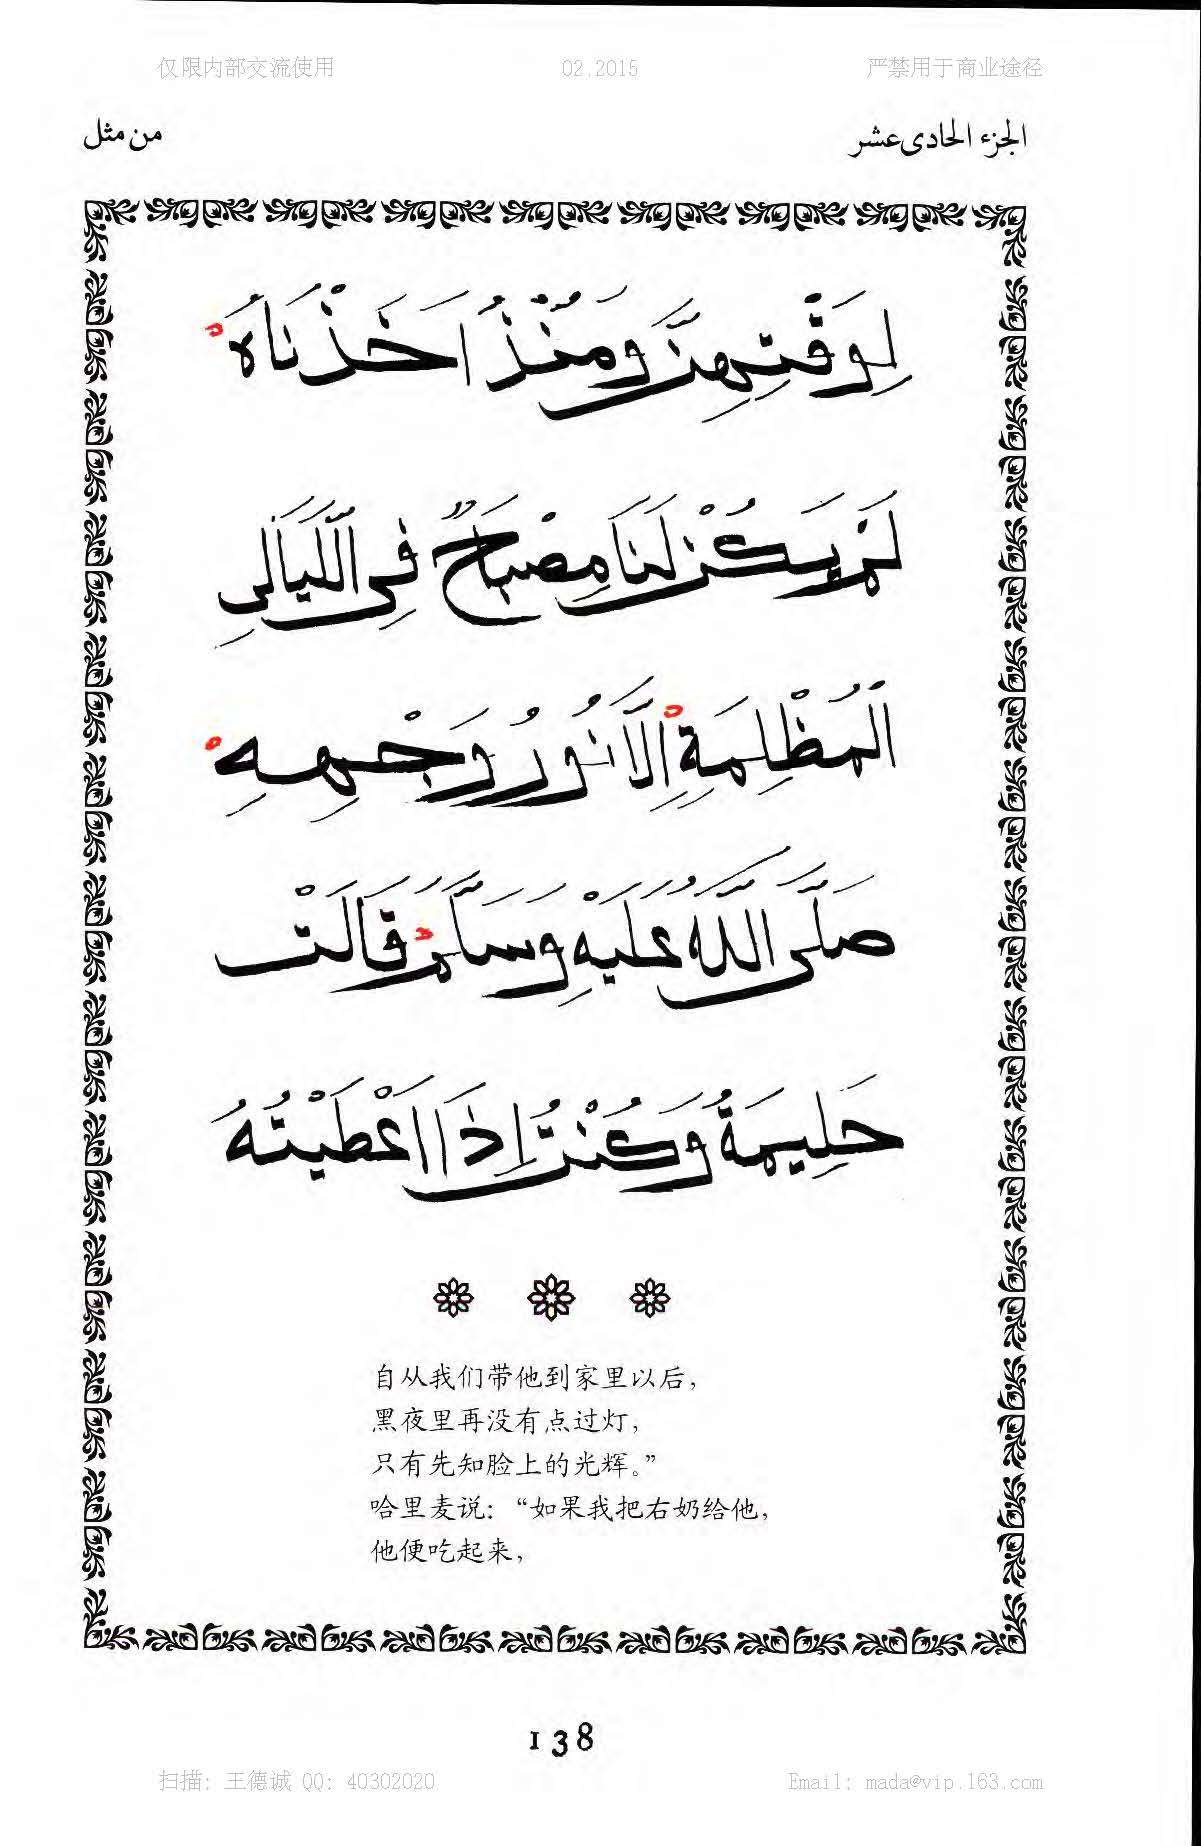 仅限内部交流使用 02.2015 严禁用于商业途径
الجزء الحادى عشر من مثل
لِوَقْتِهِنَّ وَمُنْذُ اَخَذْنَاهُ
لَمْ يَكُنْ لَنَا مِصْبَاحٌ فِى اللَّيَالِى
الْمُظْلِمَةِ اِلَّا نُورُ وَجْهِهِ
صَلَّى اللَّهُ عَلَيْهِ وَسَلَّمَ قَالَتْ
حَلِيمَةُ وَكُنْتُ اِذَا اَعْطَيْتُهُ
自从我们带他到家里以后，
黑夜里再没有点过灯，
只有先知脸上的光辉。”
哈里麦说：“如果我把右奶给他，
他便吃起来，
138
扫描: 王德诚 QQ: 40302020 Email: mada@vip.163.com